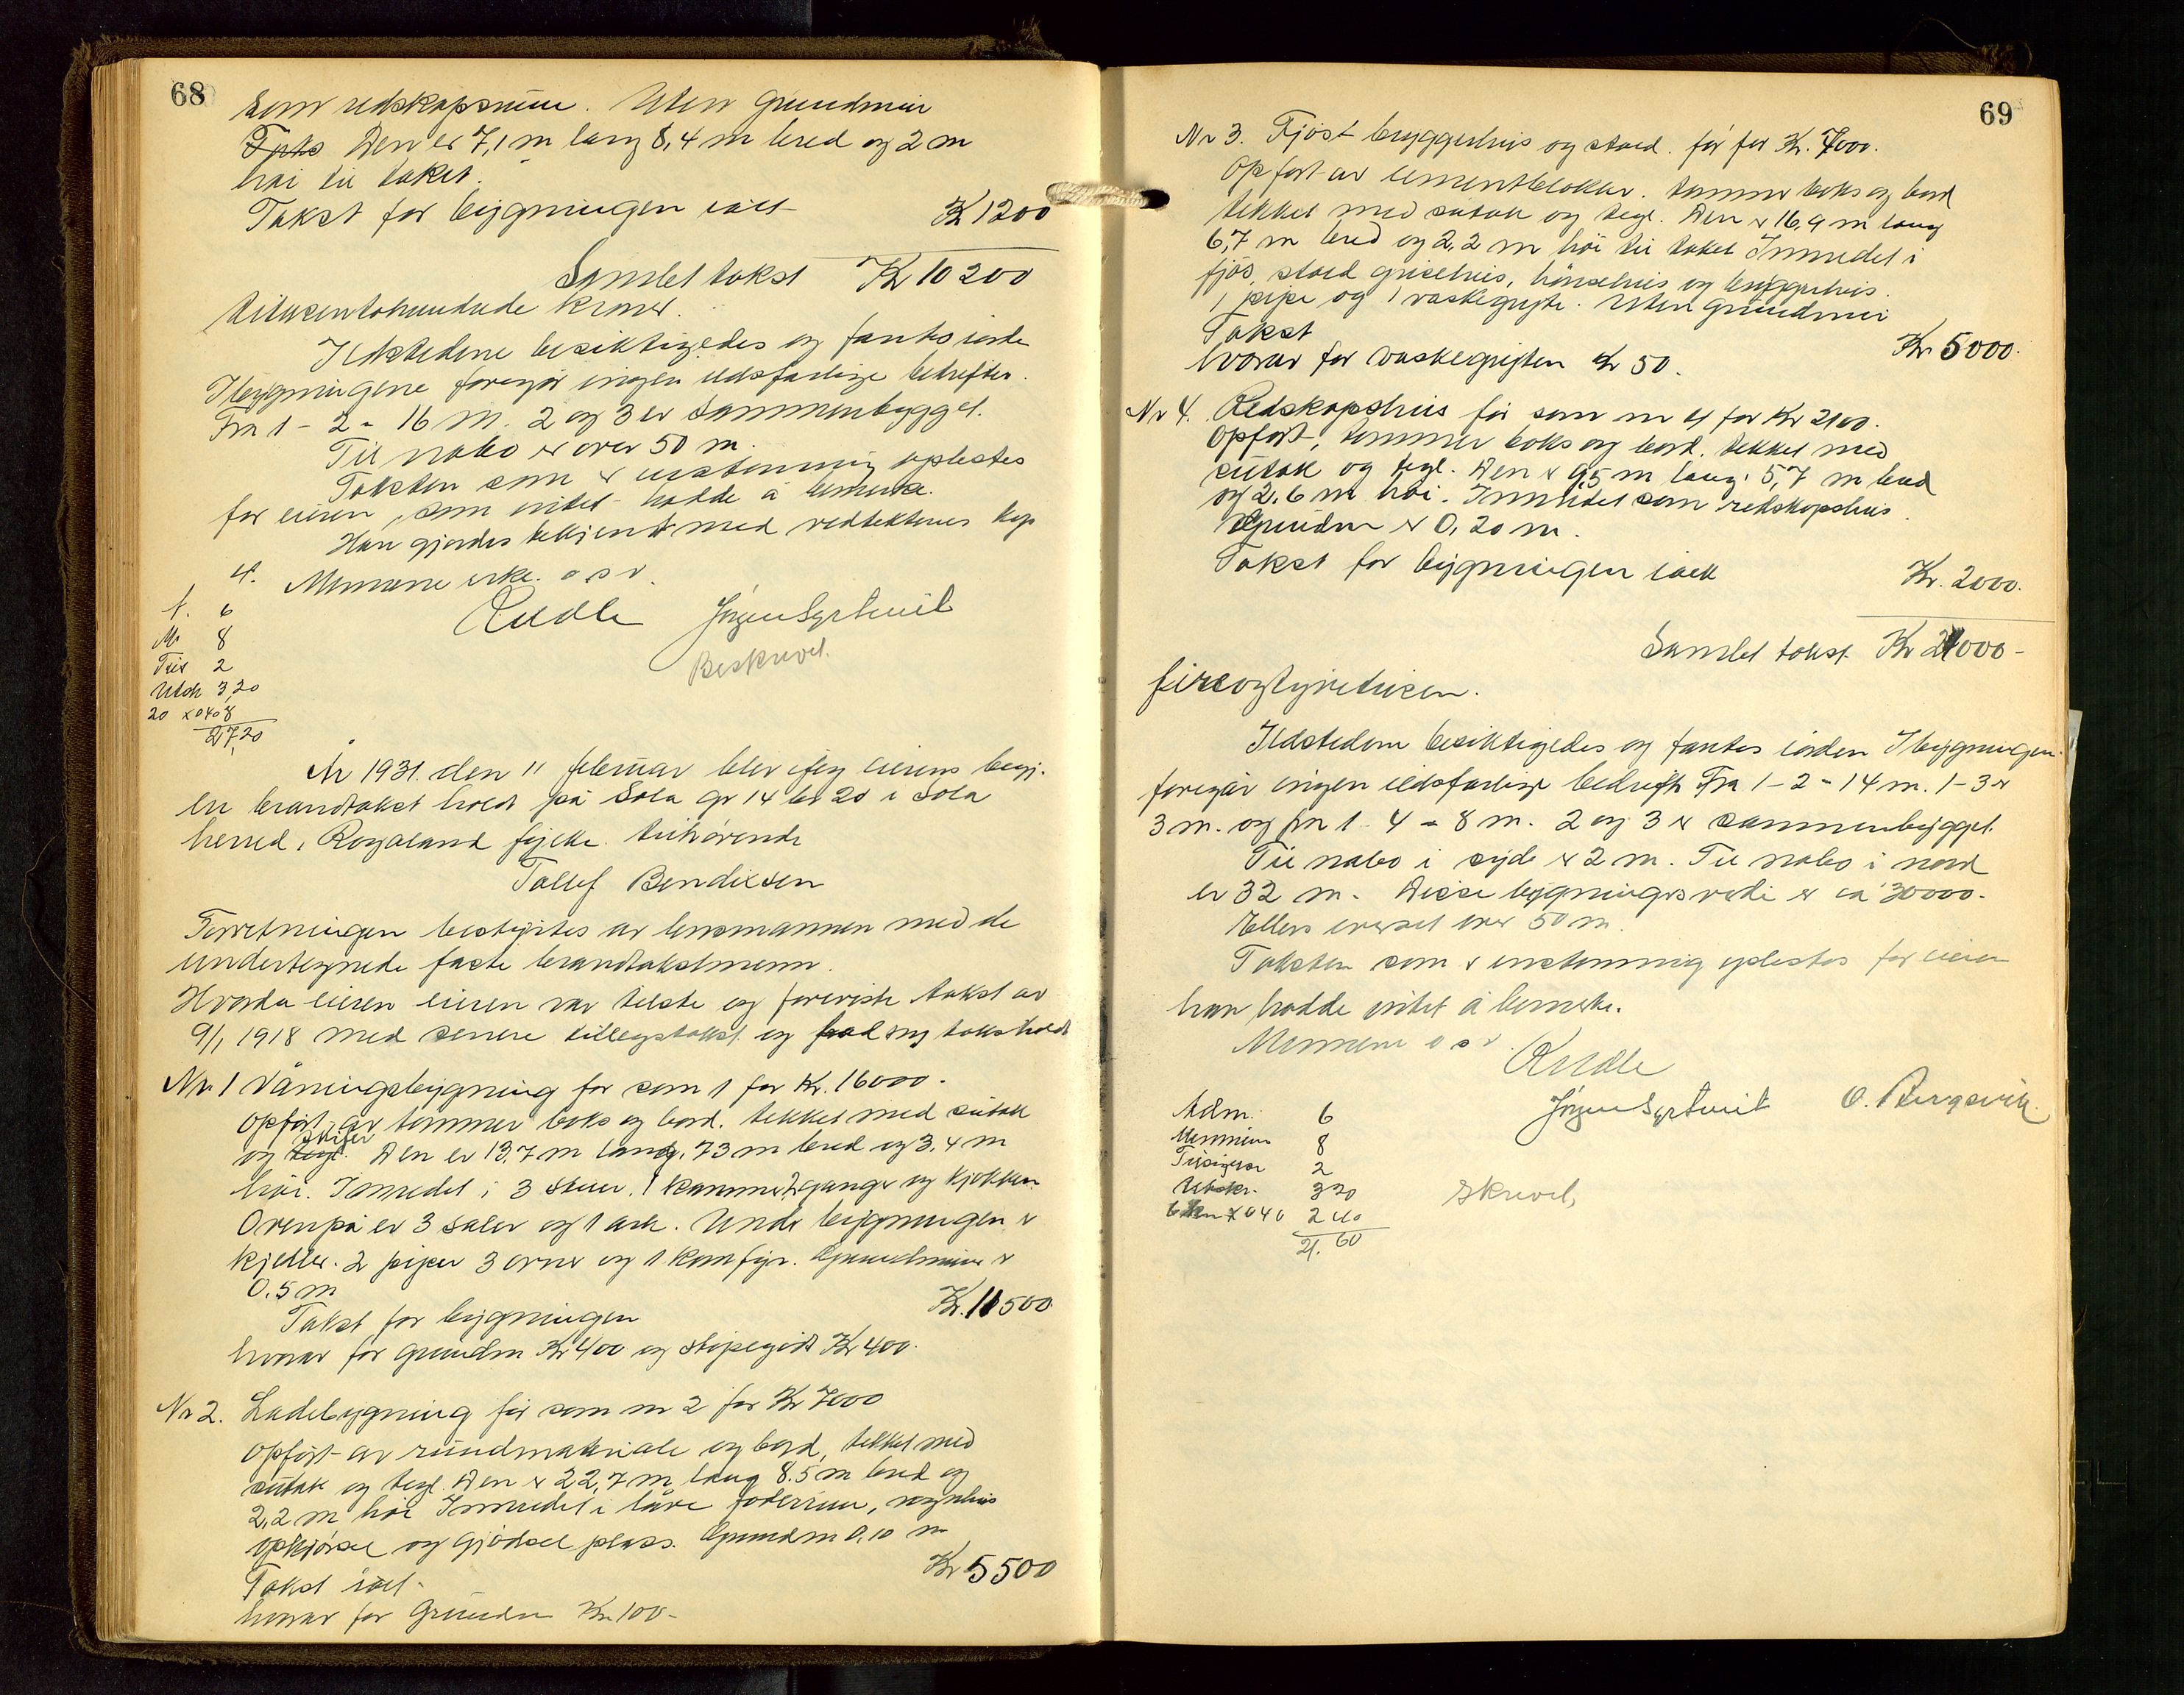 68
som redskapsrum. Uten Grundmur
Fjøs Den er 7,1 m lang 8,4 m bred og 2 m
høi til taket.
Takst for bygningen ialt Kr 1200
Samlet takst Kr 10200
titusentohundrede kroner.
Ildstedene besiktigedes og fantes iorden
I bygningene foregår ingen ildsfarlige bedrifter.
Fra 1 - 2 = 16 m. 2 og 3 er sammenbygget.
Til nabo er over 50 m.
Taksten som er enstemmig oplestes
for eieren, som intet hadde å bemerke.
Han gjordes bekjent med vedtektenes kap
4. Mennene erkl. o s v.
A. 6
M 8
Tils 2
Utsk 3,20
20 x 040 8
27,20
Rudle Jørgen Syrtveit
Beskrevet.
År 1931 den 11 februar blev efter eierens begj.
en brandtakst holdt på Sola gr 14 br 20 i Sola
herred, Rogaland fylke tilhørende
Tollef Bendixen
Forretningen bestyrtes av lensmannen med de
undertegnede faste brandtakstmenn.
Hvorda eieren eieren var tilstede og foreviste takst av
9/1 1918 med senere tillegstakst og bad ny takst holdt
Nr. 1 Våningsbygning før som 1 for Kr. 16000.
Opført av tømmer boks og bord. tekket med sutak
skifer
og tegl. Den er 13,7 m lang, 7,3 m bred og 3,4 m
høi. Innredet i 3 stuer, 1 kammer 2 ganger og kjøkken
Ovenpå er 3 saler og 1 ark. Under bygningen er
kjeller. 2 piper 3 ovner og 1 komfyr. Grundmuren er
0.5 m
Takst for bygningen Kr. 11500
hvorav for grundm Kr 400 og støpegods Kr 400.
Nr 2. Ladebygning før som nr 2 for Kr 7000
Opført av rundmateriale og bord, tekket med
sutak og tegl. Den er 22,7 m lang 8.5 m bred og
2,2 m høi Innredet i låve foderrum, vognhus
opkjørsel og gjødsel plass. Grundm 0,10 m
Takst ialt Kr 5500
hvorav for Grundm Kr. 100-
69
Nr 3. Fjøs bryggerhus og stald. før for Kr. 7000.
Opført av cementblokker. tømmer boks og bord
tekket med sutak og tegl. Den er 16,9 m lang
6,7 m bred og 2,2 m høi til taket Innredet i
fjøs, stald grisehus, hønsehus og bryggerhus.
1 pipe og 1 vaskegryte. Uten grundmur
Takst Kr. 5000.
hvorav for vaskegryten Kr 50.
Nr 4. Redskapshus før som nr 4 for Kr 2100.
Opført, tømmer boks og bord. tekket med
sutak og tegl. Den er 9,5 m lang. 5,7 m bred
og 2,6 m høi. Innredet som redskapshus.
Grundm er 0,20 m.
Takst for bygningen ialt Kr. 2000.
Samlet takst Kr 24000-
fireogtyvetusen.
Ildstedene besiktigedes og fantes iorden I bygningen
foregår ingen ildsfarlige bedrift Fra 1 - 2 = 14 m. 1 - 3 er
3 m. og fra 1 - 4 = 8 m. 2 og 3 er sammenbygget.
Til nabo i syd er 2 m. Til nabo i nord
er 32 m. Disse bygningsverdi er ca 30000.
Ellers overalt over 50 m.
Taksten som er enstemmig oplestes for eieren
han hadde intet å bemerke.
Mennene o s v.
Rudle
Jørgen Syrtveit O. Bergsvik
Adm. 6
Mennene 8
Tilsigelse 2
Utskr. 320
6 km x 040 240
21.60
Skrevet,